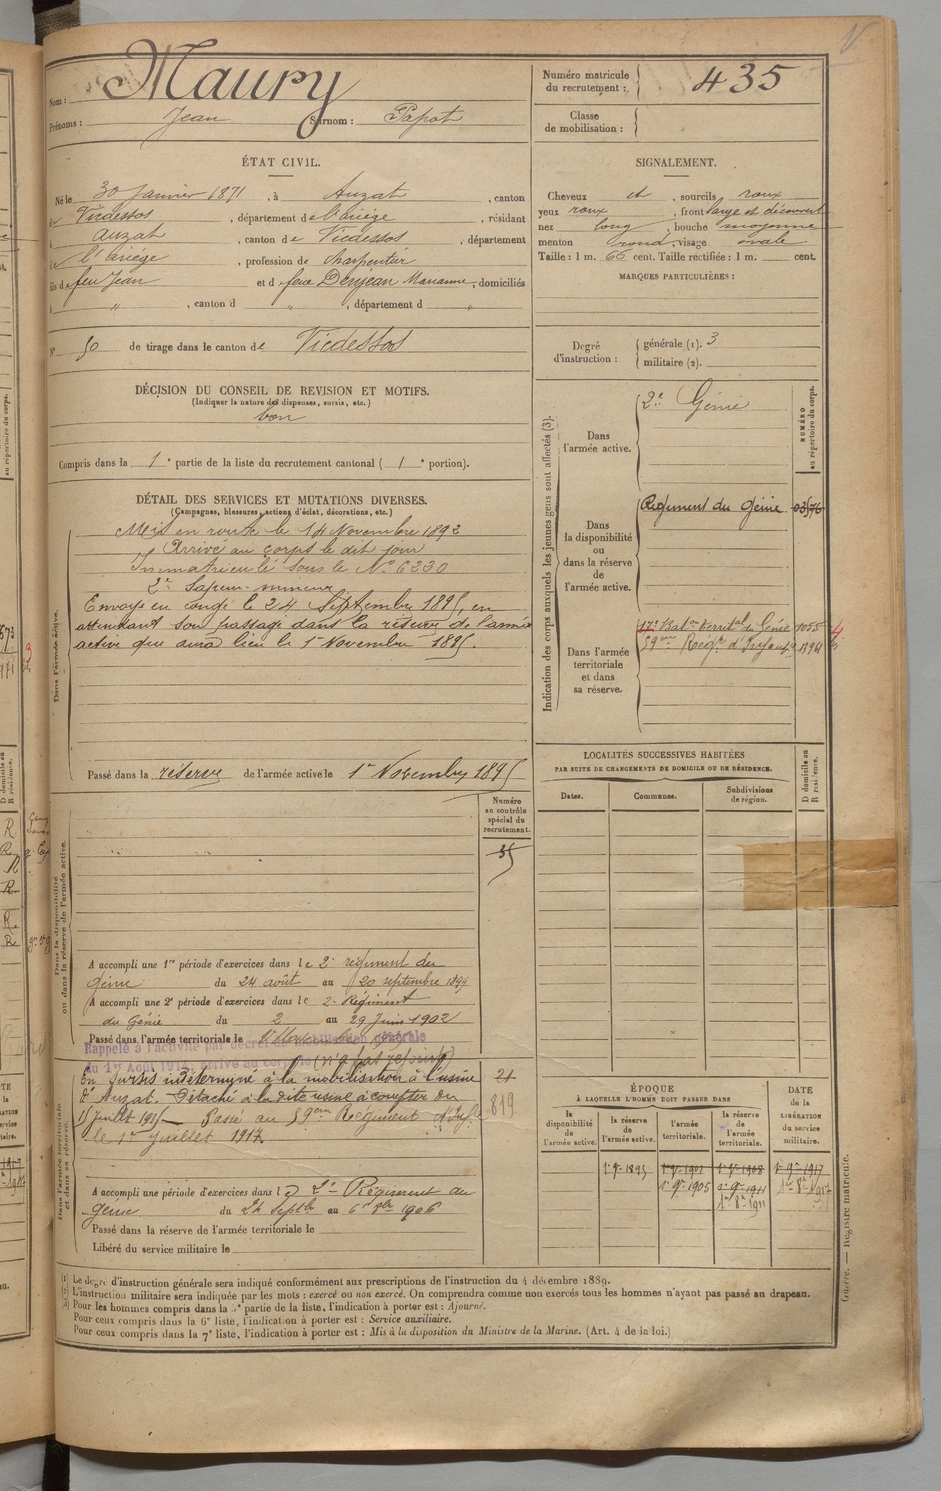 Nom : Maury
Prénoms : Jean Surnom : Papot
Numéro matricule du recrutement : 435
Classe de mobilisation :
ÉTAT CIVIL.
Né le 30 Janvier 1871, à Auzat, canton
de Vicdessos, département de l'Ariège, résidant
à Auzat, canton de Vicdessos, département
de l'Ariège, profession de charpentier
fils de feu Jean et d feue Denjean Marianne, domiciliés
à ", canton d ", département d "
N° 50 de tirage dans le canton de Vicdessos
SIGNALEMENT.
Cheveux et, sourcils roux
yeux roux, front large et découvert
nez long, bouche moyenne
menton rond, visage ovale
Taille : 1 m. 66 cent. Taille rectifiée : 1 m. cent.
MARQUES PARTICULIÈRES :
Degré d'instruction : générale (1). 3
militaire (2).
DÉCISION DU CONSEIL DE REVISION ET MOTIFS.
(Indiquer la nature des dispenses, sursis, etc.)
bon
Compris dans la 1e partie de la liste du recrutement cantonal (1e portion).
DÉTAIL DES SERVICES ET MUTATIONS DIVERSES.
(Campagnes, blessures, actions d'éclat, décorations, etc.)
Dans l'armée active.
Mis en route le 14 Novembre 1892
Arrivé au corps le dit jour
Immatriculé sous le N° 6230
2e Sapeur-mineur
Envoyé en congé le 24 Septembre 1895, en
attendant son passage dans la réserve de l'armée
active qui aura lieu le 1er Novembre 1895.
Passé dans la réserve de l'armée active le 1er Novembre 1895
Indication des corps auxquels les jeunes gens sont affectés (3).
NUMÉRO au répertoire du corps.
Dans l'armée active.
2e Génie
Dans la disponibilité ou dans la réserve de l'armée active.
Régiment du Génie
Dans l'armée territoriale et dans sa réserve.
17e Baton territal du Génie 1055
59ème Régt d'Infany
LOCALITÉS SUCCESSIVES HABITÉES
PAR SUITE DE CHANGEMENTS DE DOMICILE OU DE RÉSIDENCE.
Dates. Communes. Subdivisions de région.
D domicile ou R résidence.
Dans la disponibilité ou dans la réserve de l'armée active.
Numéro au contrôle spécial du recrutement.
35
A accompli une 1re période d'exercices dans le 2e régiment du
génie du 24 août au 20 septembre 1899
A accompli une 2e période d'exercices dans le 2e Régiment
du Génie du 2 au 29 Juin 1902
Passé dans l'armée territoriale le
Rappelé à l'activité par décret de mobilisation générale
du 1er Août 1914. Arrivé au corps le (n'a pas rejoint)
Dans l'armée territoriale et dans sa réserve.
En sursis indéterminé à la mobilisation à l'usine
d'Auzat. Détaché à la dite usine à compter du
15 Juillet 1915 Passé au 59eme Régiment d'Infie
le 1er Juillet 1917.
21
819
A accompli une période d'exercices dans le 2e Régiment du
génie du 24 Septbre au 6 8bre 1906
Passé dans la réserve de l'armée territoriale le
Libéré du service militaire le
ÉPOQUE
À LAQUELLE L'HOMME DOIT PASSER DANS
la disponibilité de l'armée active.
la réserve de l'armée active. 1er 9e 1895
l'armée territoriale. 1er 9e 1902
1er 9e 1905
la réserve de l'armée territoriale. 1er 9e 1908
1er 9e 1911
1er 8e 1911
DATE de la LIBÉRATION du service militaire. 1er 9e 1917
1er 8e 1917
(1) Le degré d'instruction générale sera indiqué conformément aux prescriptions de l'instruction du 4 décembre 1889.
(2) L'instruction militaire sera indiquée par les mots : exercé ou non exercé. On comprendra comme non exercés tous les hommes n'ayant pas passé au drapeau.
(3) Pour les hommes compris dans la 5e partie de la liste, l'indication à porter est : Ajourné.
Pour ceux compris dans la 6e liste, l'indication à porter est : Service auxiliaire.
Pour ceux compris dans la 7e liste, l'indication à porter est : Mis à la disposition du Ministre de la Marine. (Art. 4 de la loi.)
Guerre. — Registre matricule.